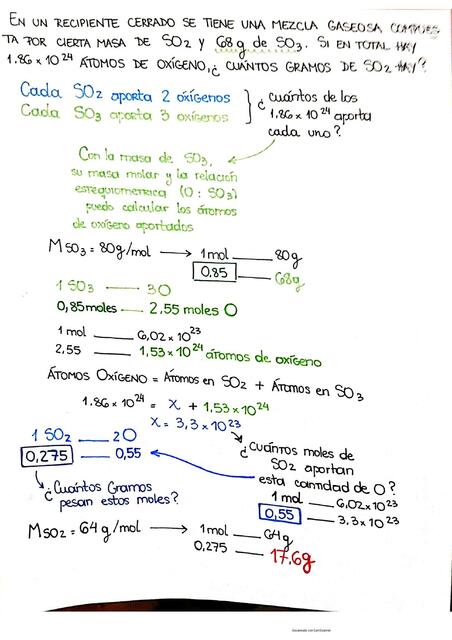 EN UN RECIPIENTE CERRADO SE TIENE UNA MEZCLA GASEOSA COMPUES
TA POR CIERTA MASA DE SO2 Y 68 g DE SO3. SI EN TOTAL HAY
1.86 x 10^24 ÁTOMOS DE OXÍGENO, ¿ CUÁNTOS GRAMOS DE SO2 HAY?
Cada SO2 aporta 2 oxígenos
Cada SO3 aporta 3 oxígenos
¿ cuántos de los
1.86 x 10^24 aporta
cada uno?
Con la masa de SO3,
su masa molar y la relación
estequiometrica (O : SO3)
puedo calcular los átomos
de oxígeno aportados
M SO3 = 80g/mol → 1mol ___ 80g
0,85 ___ 68g
1 SO3 ___ 3O
0,85moles ___ 2.55 moles O
1 mol ___ 6,02 x 10^23
2.55 ___ 1,53 x 10^24 átomos de oxígeno
ÁTOMOS OXÍGENO = Átomos en SO2 + Átomos en SO3
1.86 x 10^24 = x + 1,53 x 10^24
x = 3,3 x 10^23
1 SO2 ___ 2O
0,275 ___ 0,55
¿Cuántos moles de
SO2 aportan
esta cantidad de O?
1 mol ___ 6,02 x 10^23
0,55 ___ 3,3 x 10^23
¿Cuántos Gramos
pesan estos moles?
M SO2 = 64 g/mol → 1mol ___ 64g
0,275 ___ 17.6g
Escaneado con CamScanner